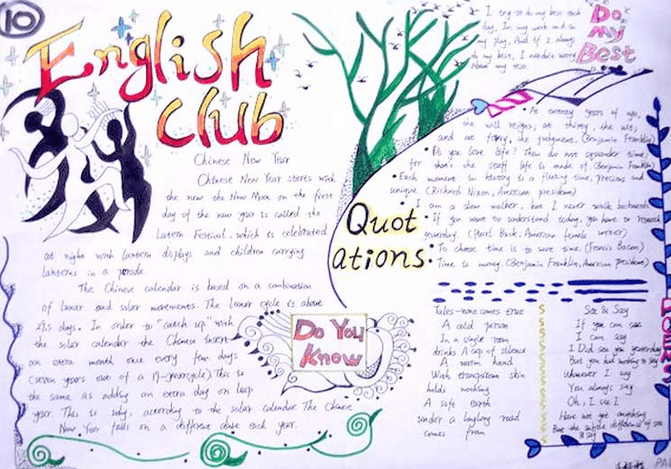 10
English
Club
Chinese New Year
Chinese New Year starts with
the new the New Moon on the first
day of the new year is called the
Lantern Festival, which is celebrated
at night with lantern displays and children carrying
lanterns in a parade.
The Chinese calendar is based on a combination
of lunar and solar movements. The lunar cycle is about
29.5 days. In order to "catch up" with
the solar calendar the Chinese insert
an extra month once every few days
years out of a This is
the same as adding an extra day on leap
year. This is why, according to the solar calendar. The Chinese
New Year falls on a different date each year.
Do You
Know
I try to do my best each
day, In my work and in
my play, And if I always
do my best, I needn't worry
about my
Do
My
Best
Quot
ations:
At twenty years of age,
the will reigns; at thirty, the wit;
and at forty, the judgment. (Benjamin Franklin)
Do you love life? Then do not squander time,
for that's the stuff life is made of (Benjamin Franklin)
Each moment in history is a fleeting time, precious and
unique. (Richard Nixon, American president)
I am a slow walker, but I never walk backwards.
If you want to understand today, you have to research
yesterday. (Pearl Buck, American female writer)
To choose time is to save time. (Francis Bacon)
Time is money. (Benjamin Franklin, American president)
Tales-none comes true
A cold person
In a single room
drinks A cup of silence
A warm hand
With transparent skin
holds nothing
A safe earth
under a laughing road
comes from
See & Say
If you can see
I can say
I Did see you yesterday
But you had nothing to say
Whenever I say
You always say
Oh, I see!
Have we got something
But the subtle difference of see
& say